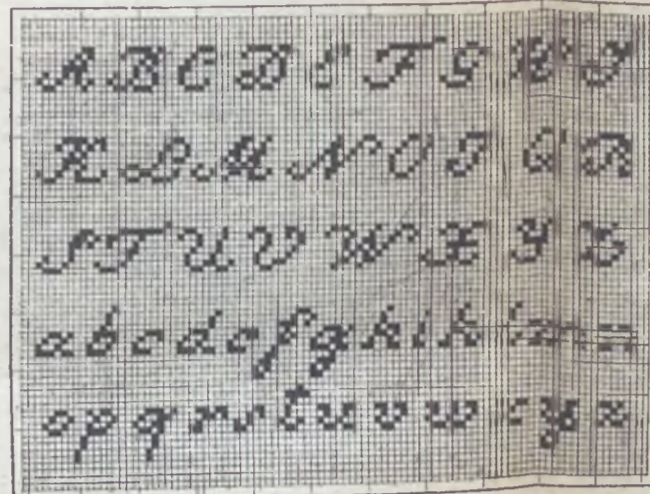 A B C D E F G H I
K L M N O P Q R
S T U V W X Y Z
a b c d e f g h i k l m n
o p q r s t u v w x y z